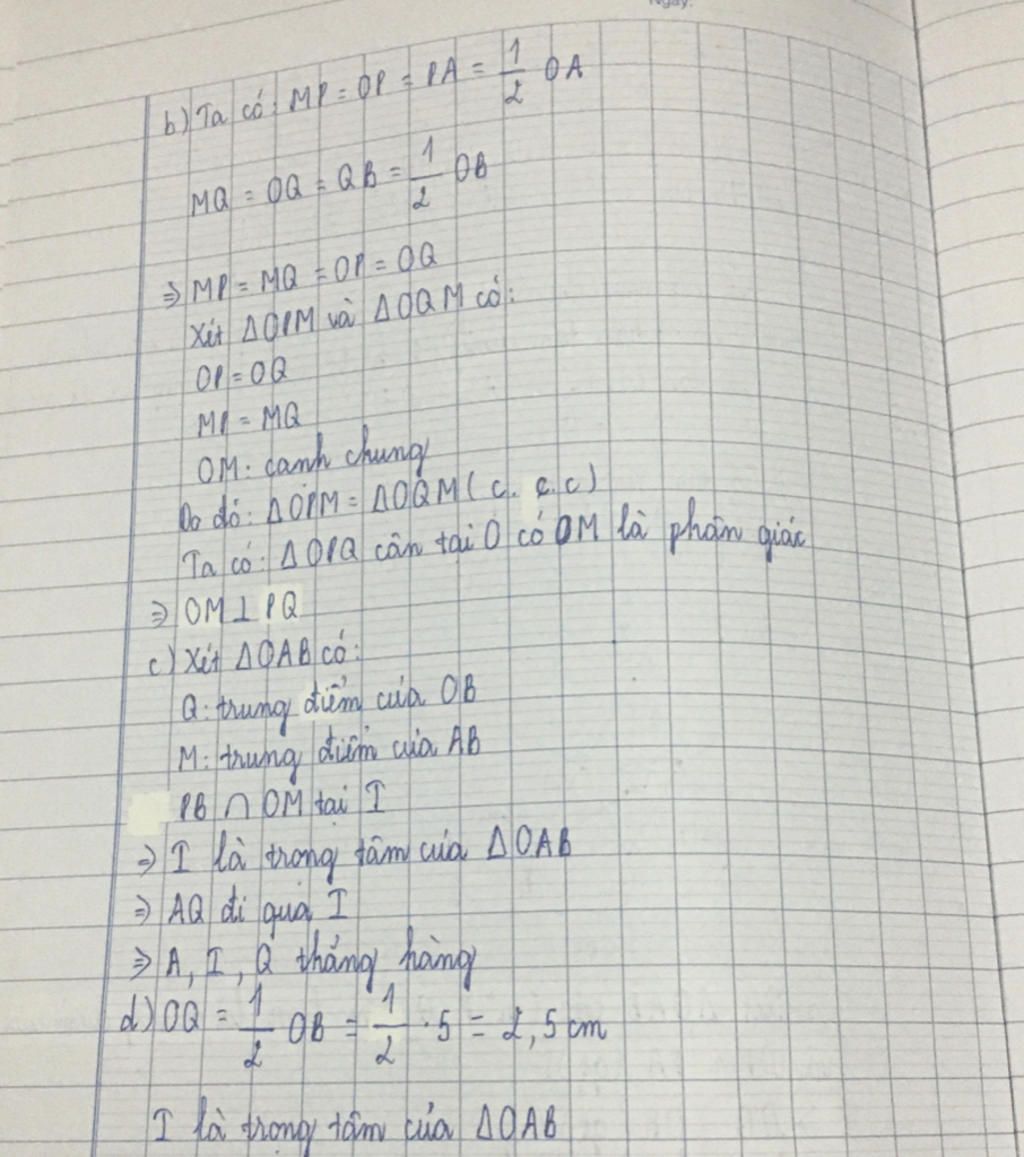 Ngày:
b) Ta có: MP = OP = PA = 1/2 OA
MQ = OQ = QB = 1/2 OB
⇒ MP = MQ = OP = OQ
Xét ΔOPM và ΔOQM có:
OP = OQ
MP = MQ
OM: cạnh chung
Do đó: ΔOPM = ΔOQM ( c. c. c )
Ta có: ΔOPQ cân tại O có OM là phân giác
⇒ OM ⊥ PQ
c) Xét ΔOAB có:
Q: trung điểm của OB
M: trung điểm của AB
PB ∩ OM tại I
⇒ I là trọng tâm của ΔOAB
⇒ AQ đi qua I
⇒ A, I, Q thẳng hàng
d) OQ = 1/2 OB = 1/2 · 5 = 2,5 cm
I là trọng tâm của ΔOAB